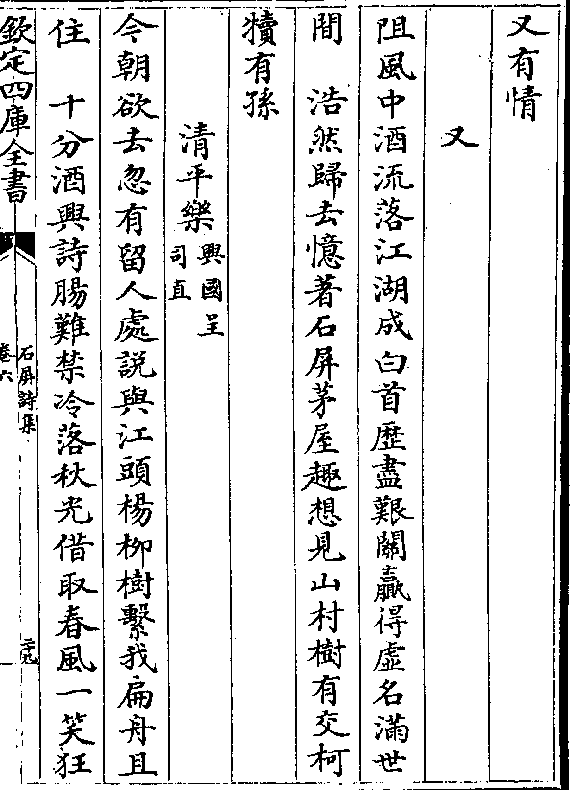 又有情
又
阻風中酒流落江湖成白首歷盡艱關贏得虛名滿世
間　浩然歸去憶著石屏茅屋趣想見山村樹有交柯
犢有孫
清平樂興國呈
司直
今朝欲去忽有留人處說與江頭楊栁樹繫我扁舟且
住　十分酒興詩腸難禁冷落秋光借取春風一笑狂
欽定四庫全書
石屏詩集
卷六
二九